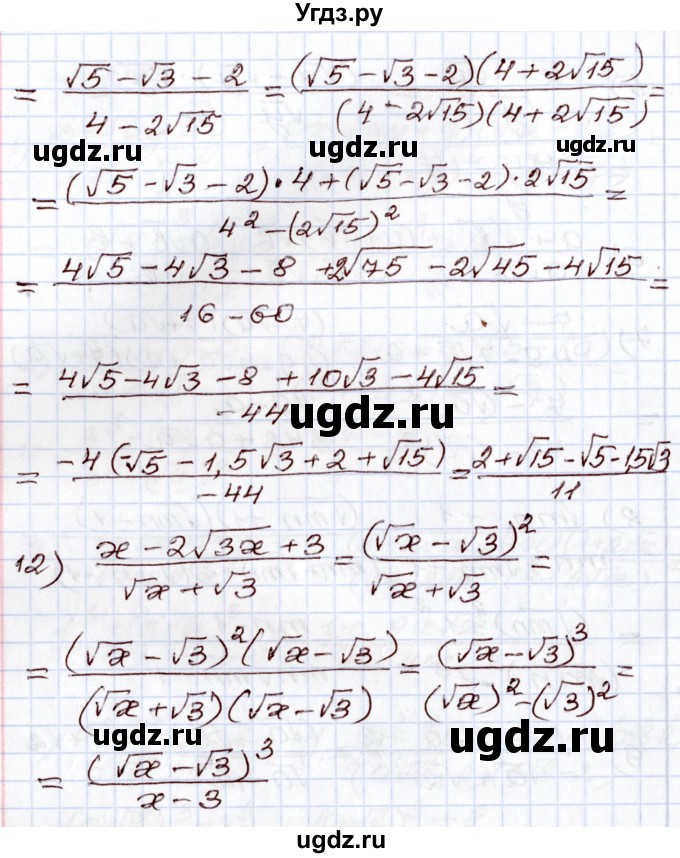 Угдз.ру
= (√5 − √3 − 2)/(4 − 2√15) = ((√5 − √3 − 2)(4 + 2√15))/((4 − 2√15)(4 + 2√15)) =
ugdz.ru ugdz.ru
= ((√5 − √3 − 2)·4 + (√5 − √3 − 2)·2√15)/(4² − (2√15)²) =
= (4√5 − 4√3 − 8 + 2√75 − 2√45 − 4√15)/(16 − 60) =
= (4√5 − 4√3 − 8 + 10√3 − 4√15)/(−44) =
ugdz.ru
= (−4(−√5 − 1,5√3 + 2 + √15))/(−44) = (2 + √15 − √5 − 1,5√3)/11
12) (x − 2√3x + 3)/(√x + √3) = (√x − √3)²/(√x + √3) =
= ((√x − √3)²(√x − √3))/((√x + √3)(√x − √3)) = (√x − √3)³/((√x)² − (√3)²) =
ugdz.ru ugdz.ru
= (√x − √3)³/(x − 3)
ugdz.ru